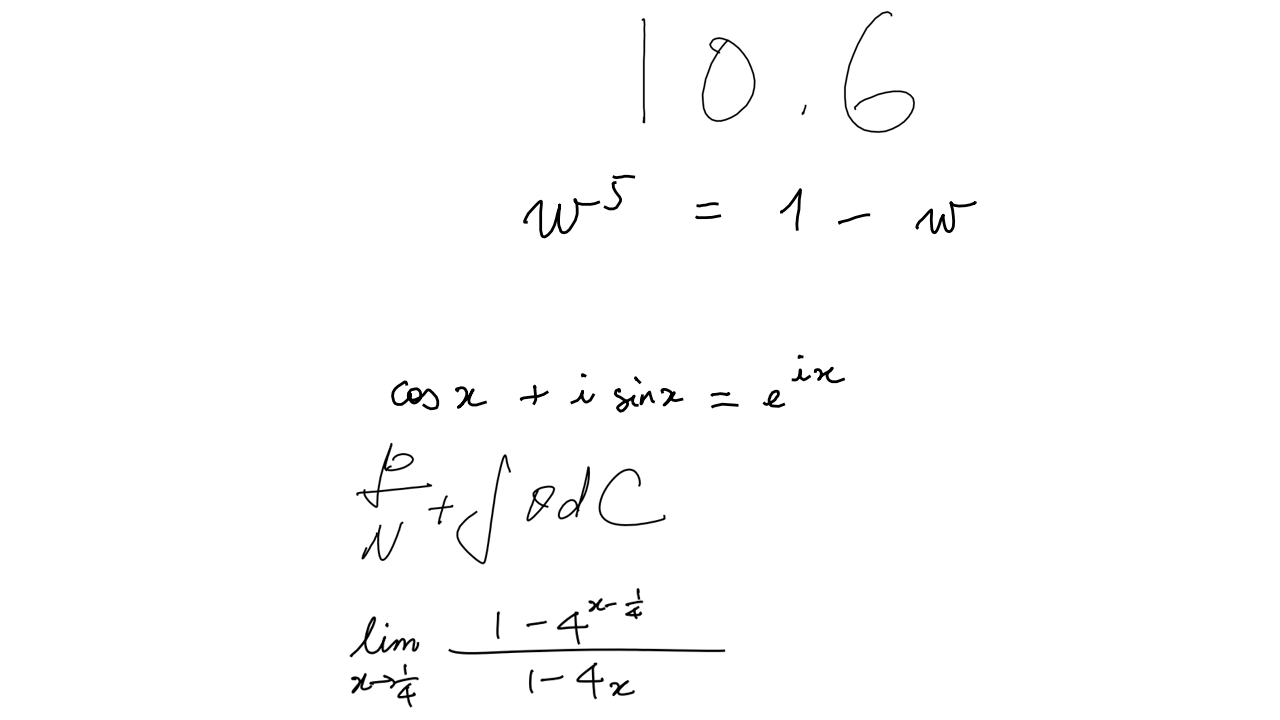 10.6
w^5 = 1 - w
cos x + i sin x = e^{ix}
\frac{p}{N} + \int \theta d C
\lim_{x \to \frac{1}{4}} \frac{1 - 4^{x - \frac{1}{4}}}{1 - 4x}